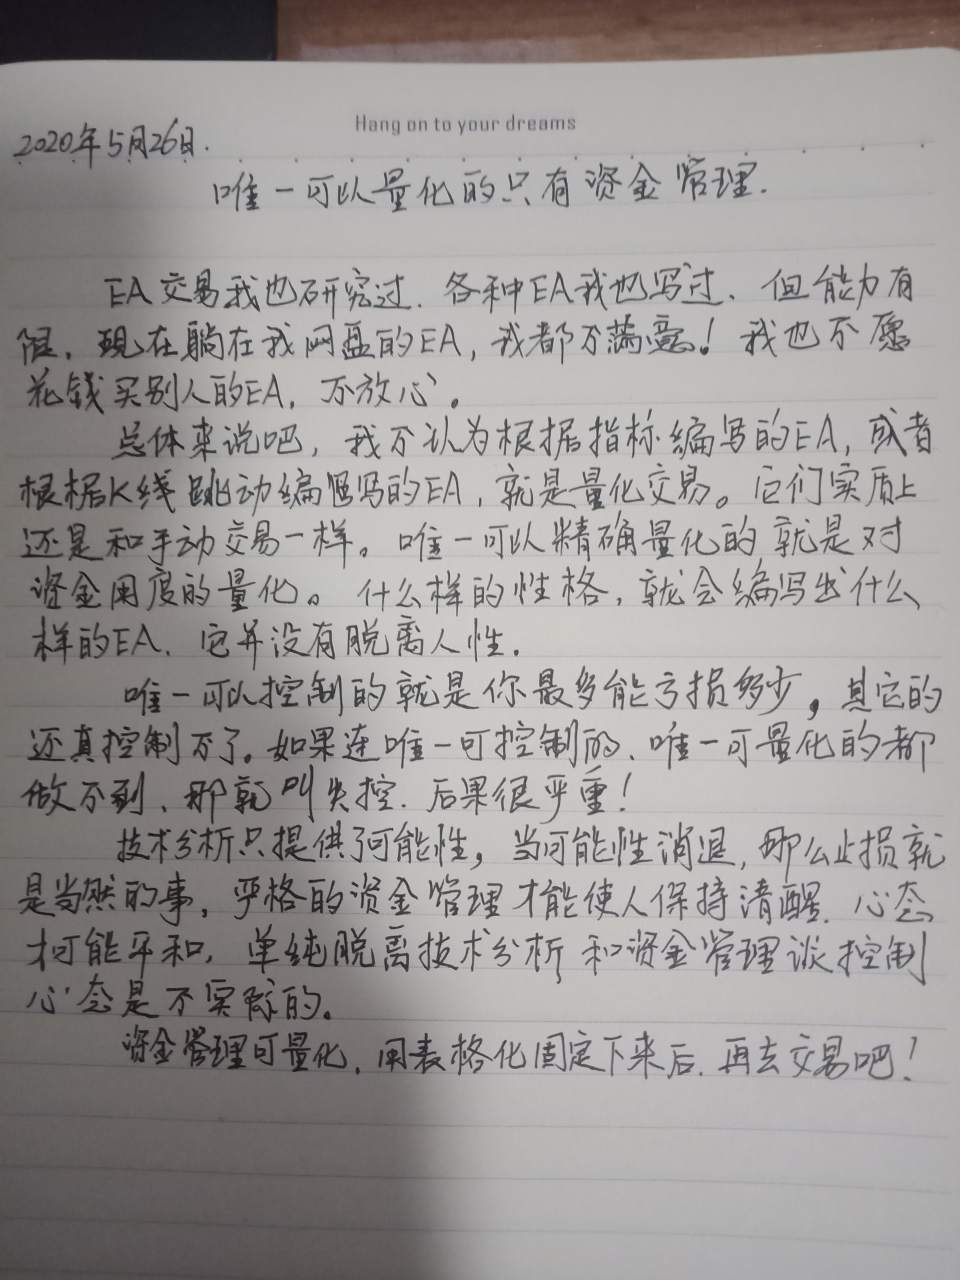 Hang on to your dreams
2020年5月26日.
唯一可以量化的只有资金管理.
EA交易我也研究过.各种EA我也写过、但能力有
限，现在躺在我网盘的EA，我都不满意！我也不愿
花钱买别人的EA，不放心。
总体来说吧，我不认为根据指标编写的EA，或者
根据K线跳动编写的EA，就是量化交易。它们实质上
还是和手动交易一样。唯一可以精确量化的就是对
资金用度的量化。什么样的性格，就会编写出什么
样的EA、它并没有脱离人性.
唯一可以控制的就是你最多能亏损多少，其它的
还真控制不了。如果连唯一可控制的、唯一可量化的都
做不到、那就叫失控.后果很严重！
技术分析只提供了可能性，当可能性消退，那么止损就
是当然的事，严格的资金管理才能使人保持清醒、心态
才可能平和，单纯脱离技术分析和资金管理谈控制
心态是不实际的。
资金管理可量化，用表格化固定下来后.再去交易吧！